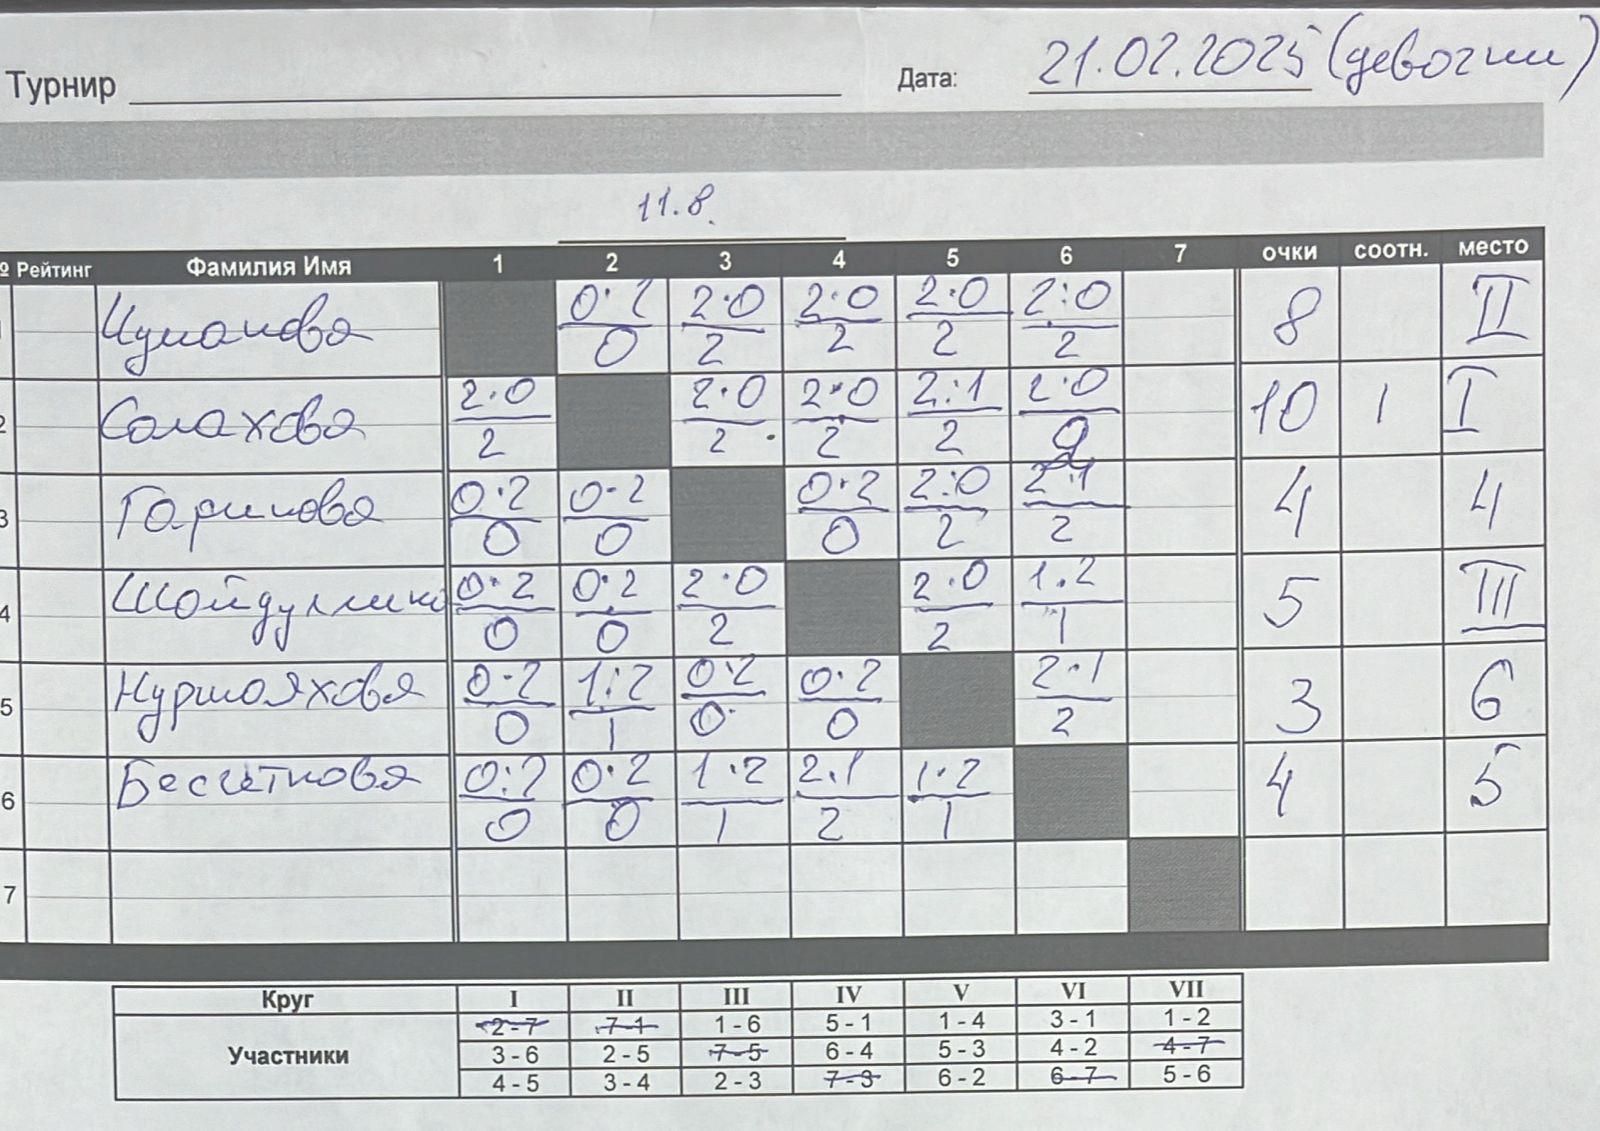 Турнир Дата: 21.02.2025 (девочки)
11.8.
№ Рейтинг Фамилия Имя 1 2 3 4 5 6 7 очки соотн. место
0:2 2:0 2:0 2:0 2:0
Чуманова 0 2 2 2 2 8 II
2:0 2:0 2:0 2:1 2:0
2 Салахова 2 2 2 2 2 10 1 I
0:2 0:2 0:2 2:0 2:1
3 Гарипова 0 0 0 2 2 4 4
0:2 0:2 2:0 2:0 1:2
4 Шайдуллина 0 0 2 2 1 5 III
0:2 1:2 0:2 0:2 2:1
5 Нурмаяхова 0 1 0 0 2 3 6
0:2 0:2 1:2 2:1 1:2
6 Бесчётнова 0 0 1 2 1 4 5
7
Круг I II III IV V VI VII
Участники
2 - 7 7 - 1 1 - 6 5 - 1 1 - 4 3 - 1 1 - 2
3 - 6 2 - 5 7 - 5 6 - 4 5 - 3 4 - 2 4 - 7
4 - 5 3 - 4 2 - 3 7 - 3 6 - 2 6 - 7 5 - 6